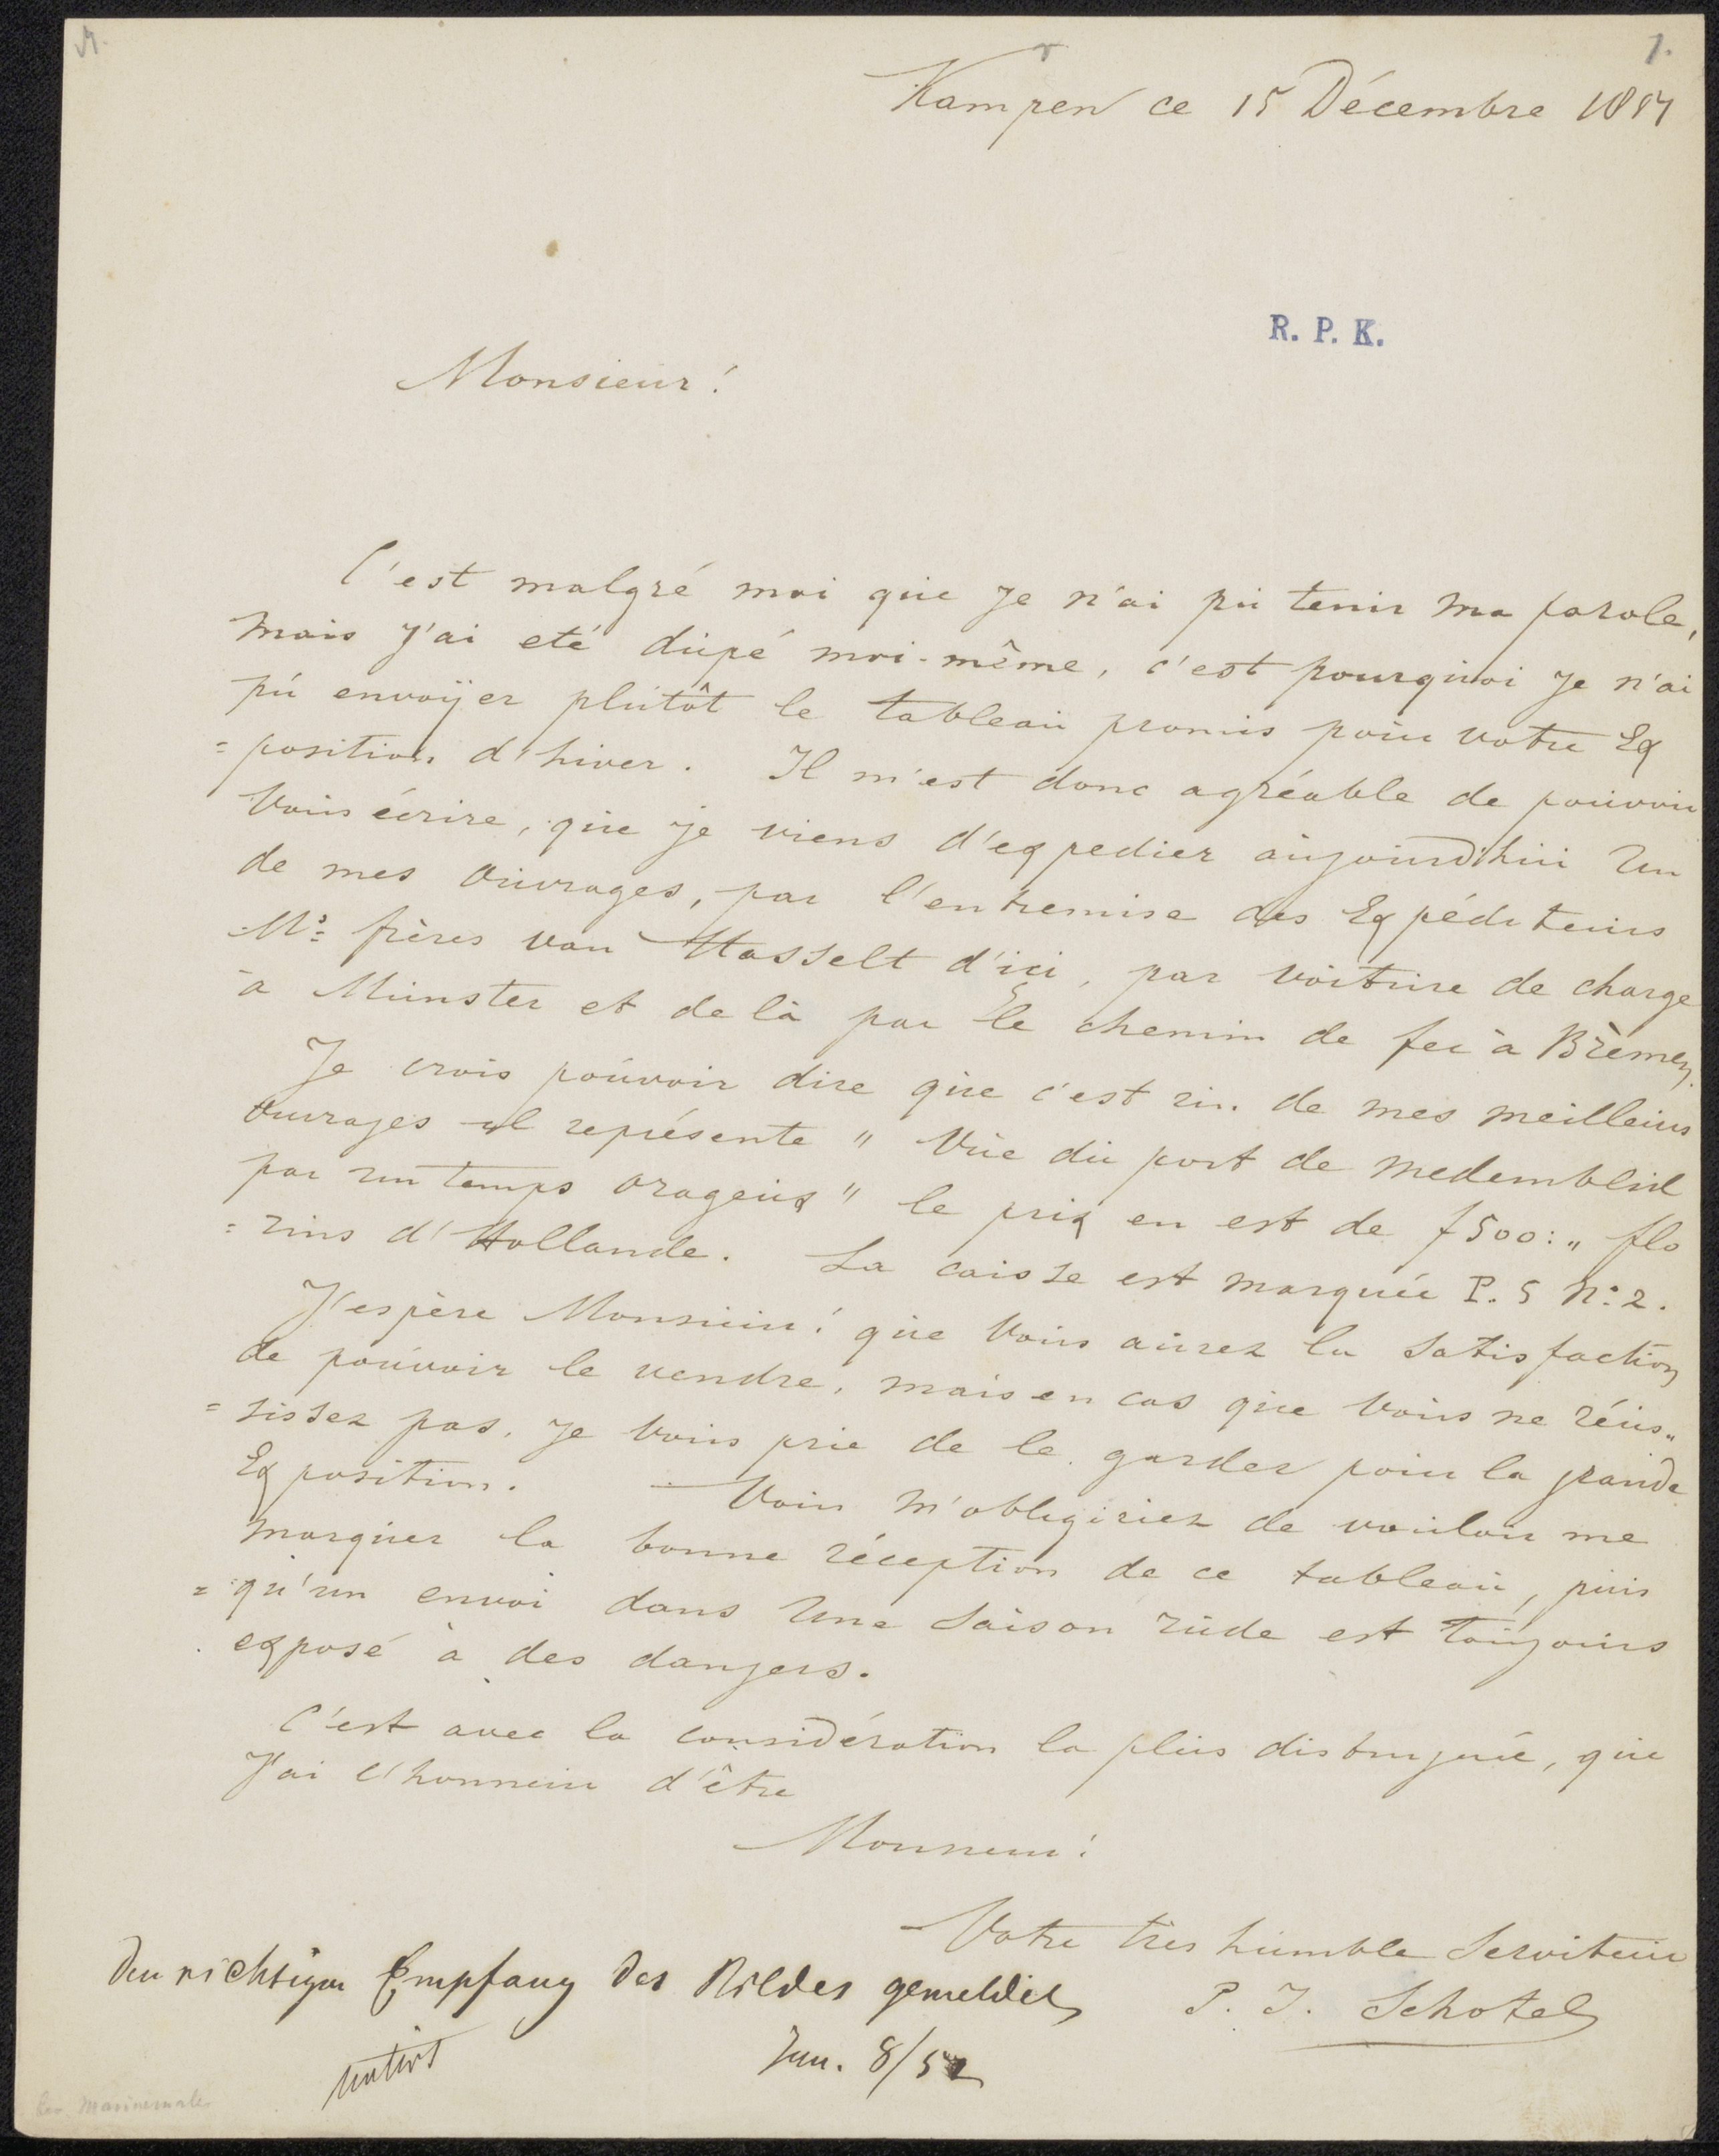 1.
Kampen ce 15 Décembre 1851
R. P. K.
Monsieur!
C'est malgré moi que je n'ai pu tenir ma parole,
mais j'ai eté dupé moi-même, c'est pourquoi je n'ai
pu envoÿer plutôt le tableau promis pour votre Ex
=position d'hiver. Il m'est donc agréable de pouvoir
Vous écrire, que je viens d'expedier aujourd'hui un
de mes ouvrages, par l'entremise des Expéditeurs
Mrs frères van Hasselt d'ici, par voiture de charge
à Munster et de là par le chemin de fer à Brèmen.
Je crois pouvoir dire que c'est un de mes meilleurs
ouvrages il représente " Vue du port de Medemblik
par un temps orageux" le prix en est de f 500:" flo
=rins d'Hollande. La caisse est marquée P. S No: 2.
J'espère Monsieur! que Vous aurez la satisfaction
de pouvoir le vendre, mais en cas que Vous ne réus"
=sissez pas, je Vous prie de le garder pour la grande
Exposition. — Vous m'obligeriez de vouloir me
marquer la bonne réception de ce tableau, puis
=qu'un envoi dans une saison rude est toujours
exposé à des dangers.
C'est avec la considération la plus distinguée, que
J'ai l'honneur d'être
Monsieur!
Votre très humble Serviteur
P. J. Schotel
Den richtigen Empfang des Bildes gemeldet
Jan. 8/52